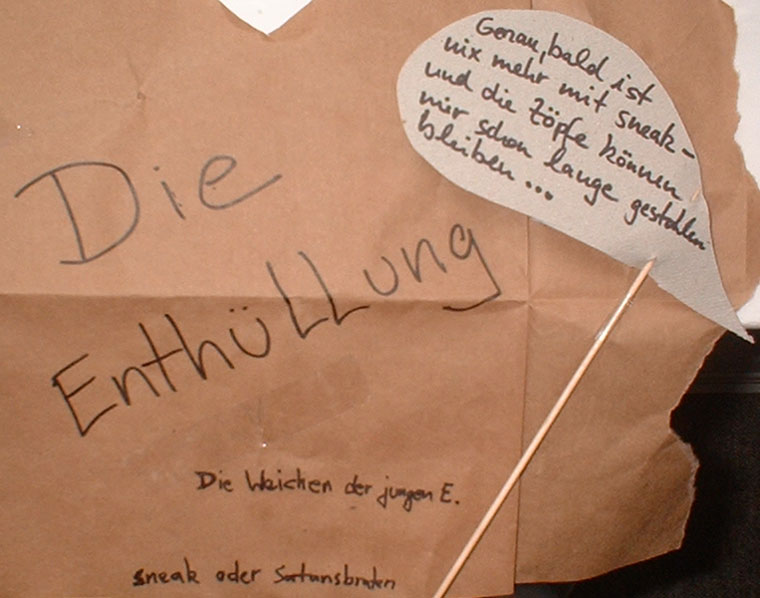 Goran, bald ist
nix mehr mit sneak-
und die Zöpfe können
mir schon lange gestohlen
bleiben...
Die
EnthüLLung
Die Weichen der jungen E.
sneak oder Satansbraten